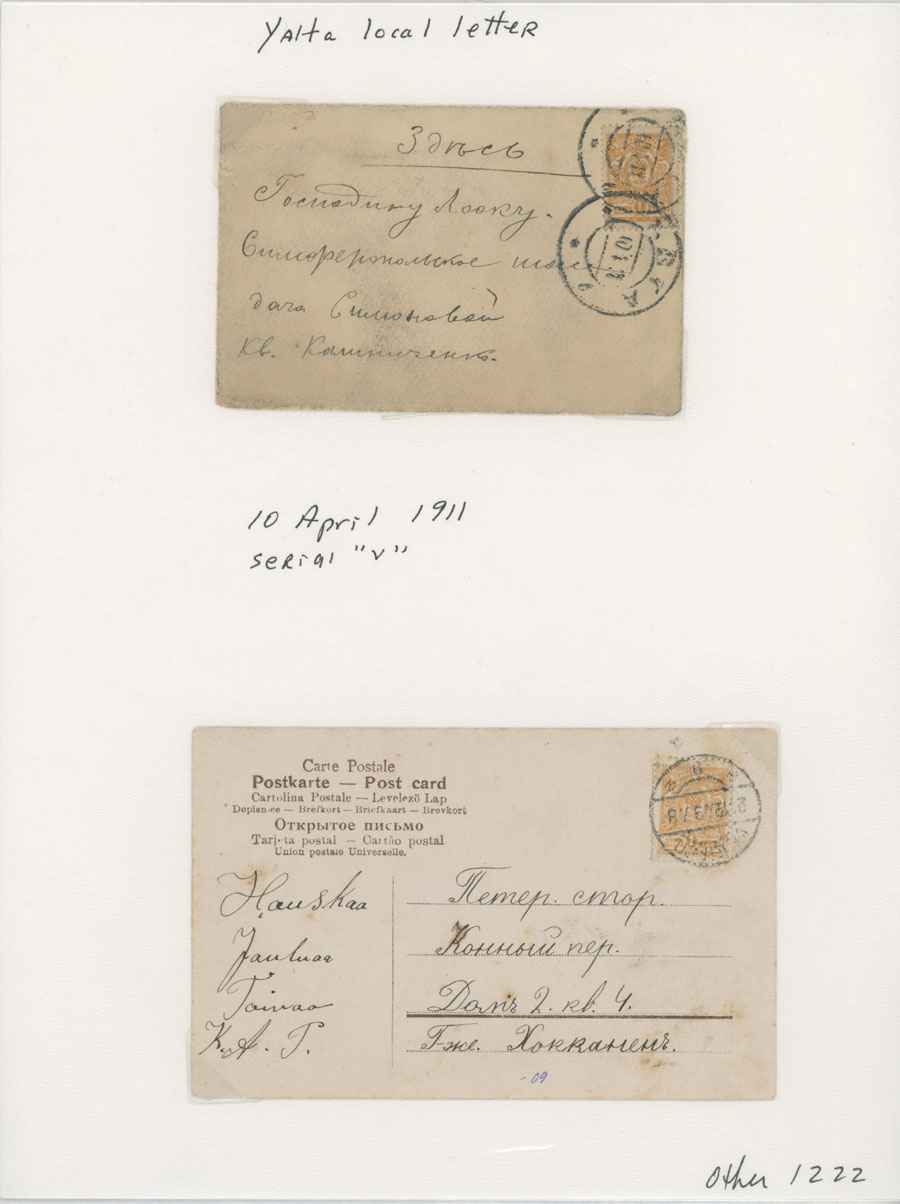 Yalta local letter
Здѣсь
Господину Лооку.
Симферопольское шос
дача Симоновой
кв. Калиниченко.
10 April 1911
serial "v"
Carte Postale
Postkarte — Post card
Cartolina Postale — Levelező Lap
Dopisnice — Brefkort — Briefkaart — Brevkort
Открытое письмо
Tarjeta postal — Cartão postal
Union postale Universelle.
Hauskaa
Joulua
Toivoo
K. A. P.
Петер. стор.
Конный пер.
Домъ 2. кв. 4.
Г-же. Хокканенъ.
- 09
Other 1222